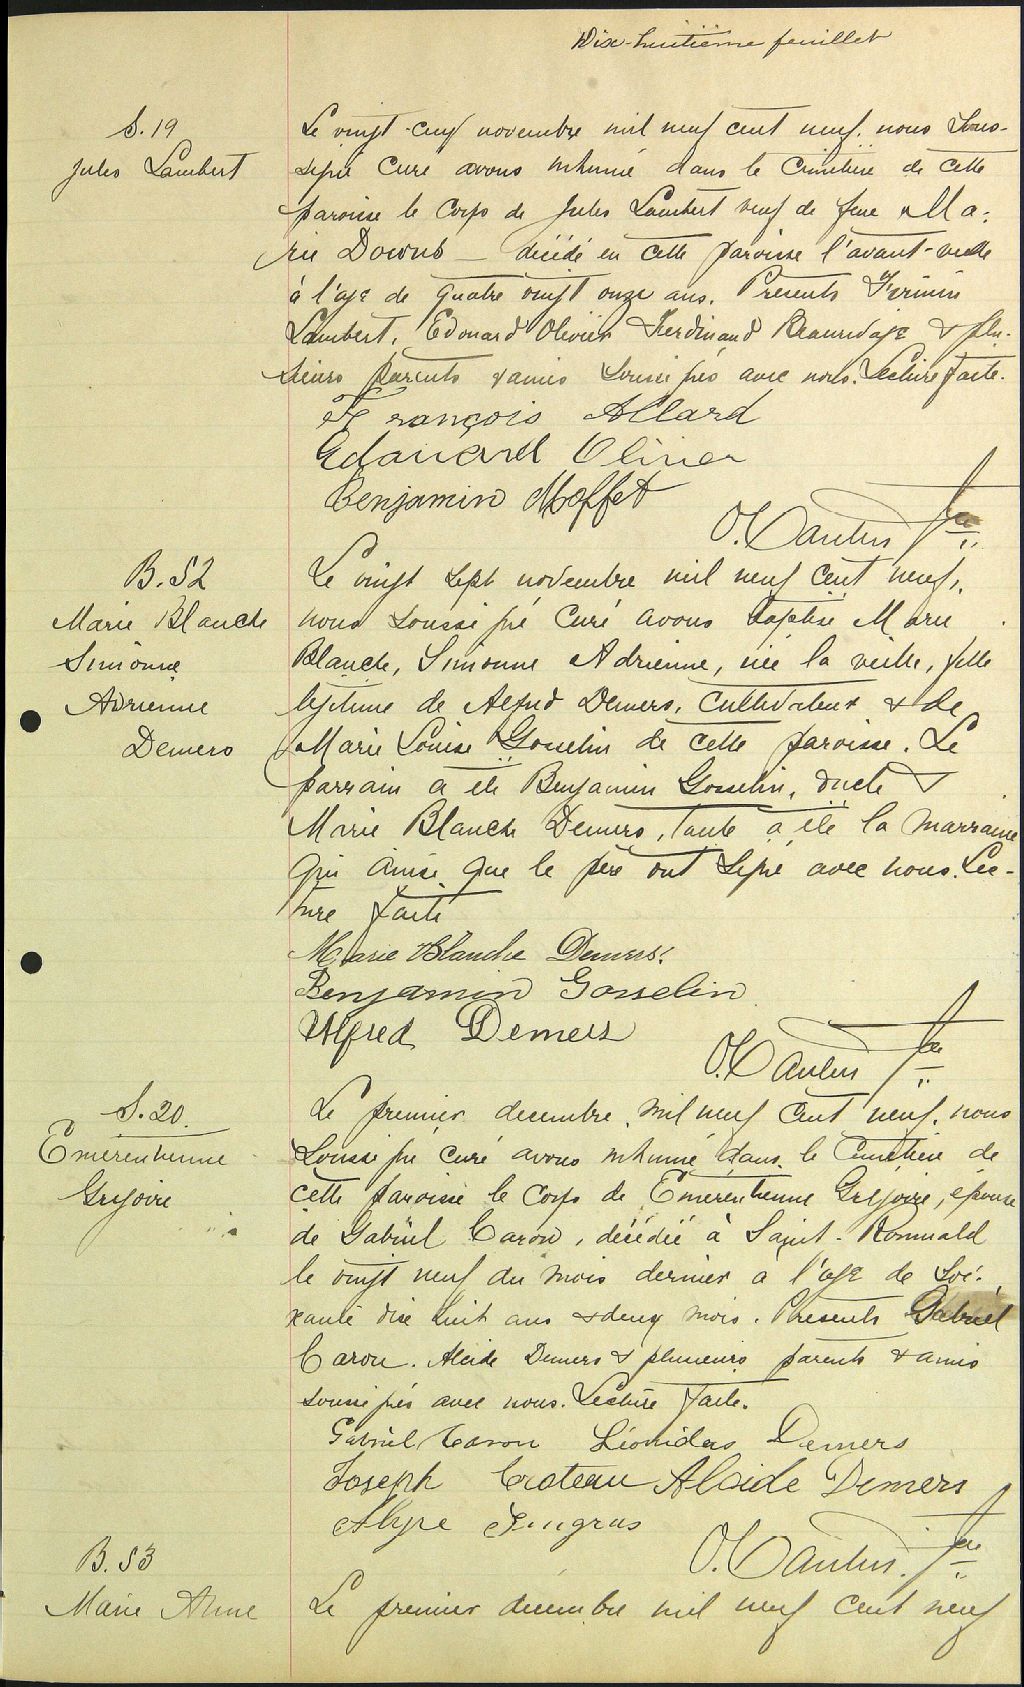 Dix-huitième feuillet
S. 19
Jules Lambert
Le vingt-cinq novembre mil neuf cent neuf, nous sous-
signé curé avons inhumé dans le cimetière de cette
paroisse le corps de Jules Lambert veuf de feue Ma-
rie décédé en cette paroisse l'avant-veille
à l'age de quatre vingt onze ans. Présents Firmin
Lambert, Edouard Olivier Ferdinand & plu-
sieurs parents & amis soussignés avec nous. Lecture faite.
François Allard
Edouard Olivier
Benjamin Moffet
B. 52
Marie Blanche
Simonne
Adrienne
Demers
Le vingt sept novembre mil neuf cent neuf,
nous soussigné curé avons baptisé Marie
Blanche, Simonne Adrienne, née la veille, fille
légitime de Alfred Demers, cultivateur & de
Marie Louise Gosselin de cette paroisse. Le
parrain a été Benjamin Gosselin, oncle &
Marie Blanche Demers, tante a été la marraine
qui ainsi que le père ont signé avec nous. Lec-
ture faite
Marie Blanche Demers.
Benjamin Gosselin
Alfred Demers
S. 20
Emérentienne
Grégoire
Le premier décembre, mil neuf cent neuf, nous
soussigné curé avons inhumé dans le cimetière de
cette paroisse le corps de Emérentienne Grégoire, épouse
de Gabriel Caron, décédée à Saint-Romuald
le vingt neuf du mois dernier à l'age de soi-
xante dix huit ans & deux mois. Présents Gabriel
Caron. Alcide Demers & plusieurs parents & amis
soussignés avec nous. Lecture faite.
Gabriel Caron Léonidas Demers
Joseph Croteau Alcide Demers
Gingras
B. 53
Marie Anne
Le premier décembre mil neuf cent neuf